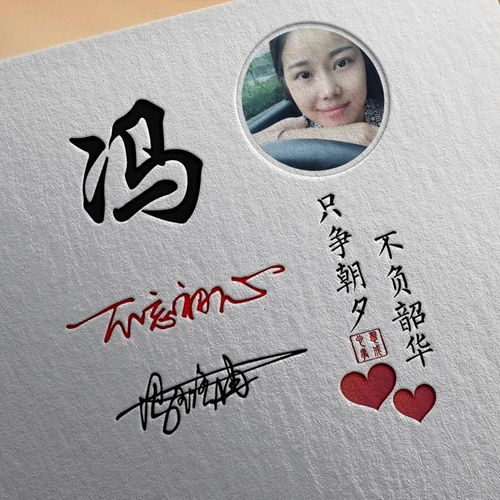 冯
不忘初心
只争朝夕
不负韶华